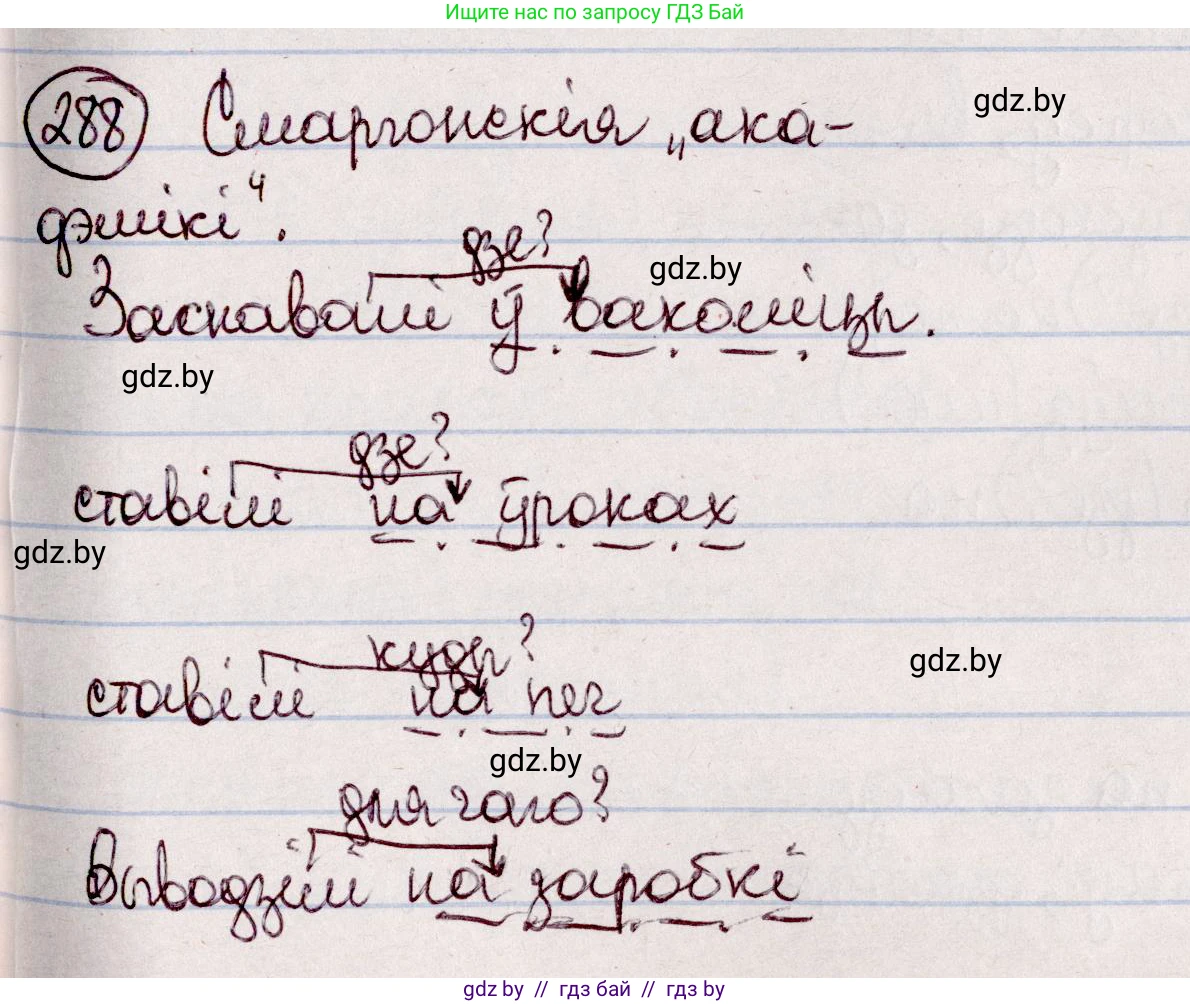 Ищите нас по запросу ГДЗ Бай
288 Смаргонскія „ака-
gdz.by
дэмікі“.
дзе?
gdz.by
Заснавалі ў ваколіцы.
gdz.by
дзе?
ставілі на ўроках
gdz.by
куды?
gdz.by
ставілі на печ
gdz.by
для чаго?
Выводзілі на заробкі
gdz.by // гдз бай // гдз by